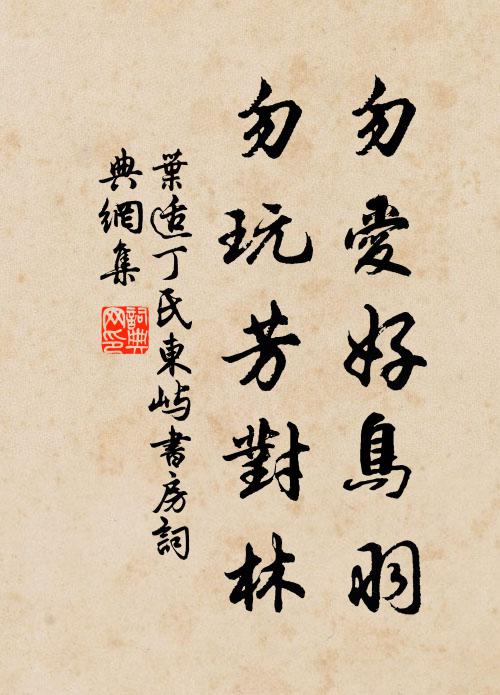 勿愛好鳥羽
勿玩芳對林
葉適丁氏東嶼書房詞
典網集
詞典網印